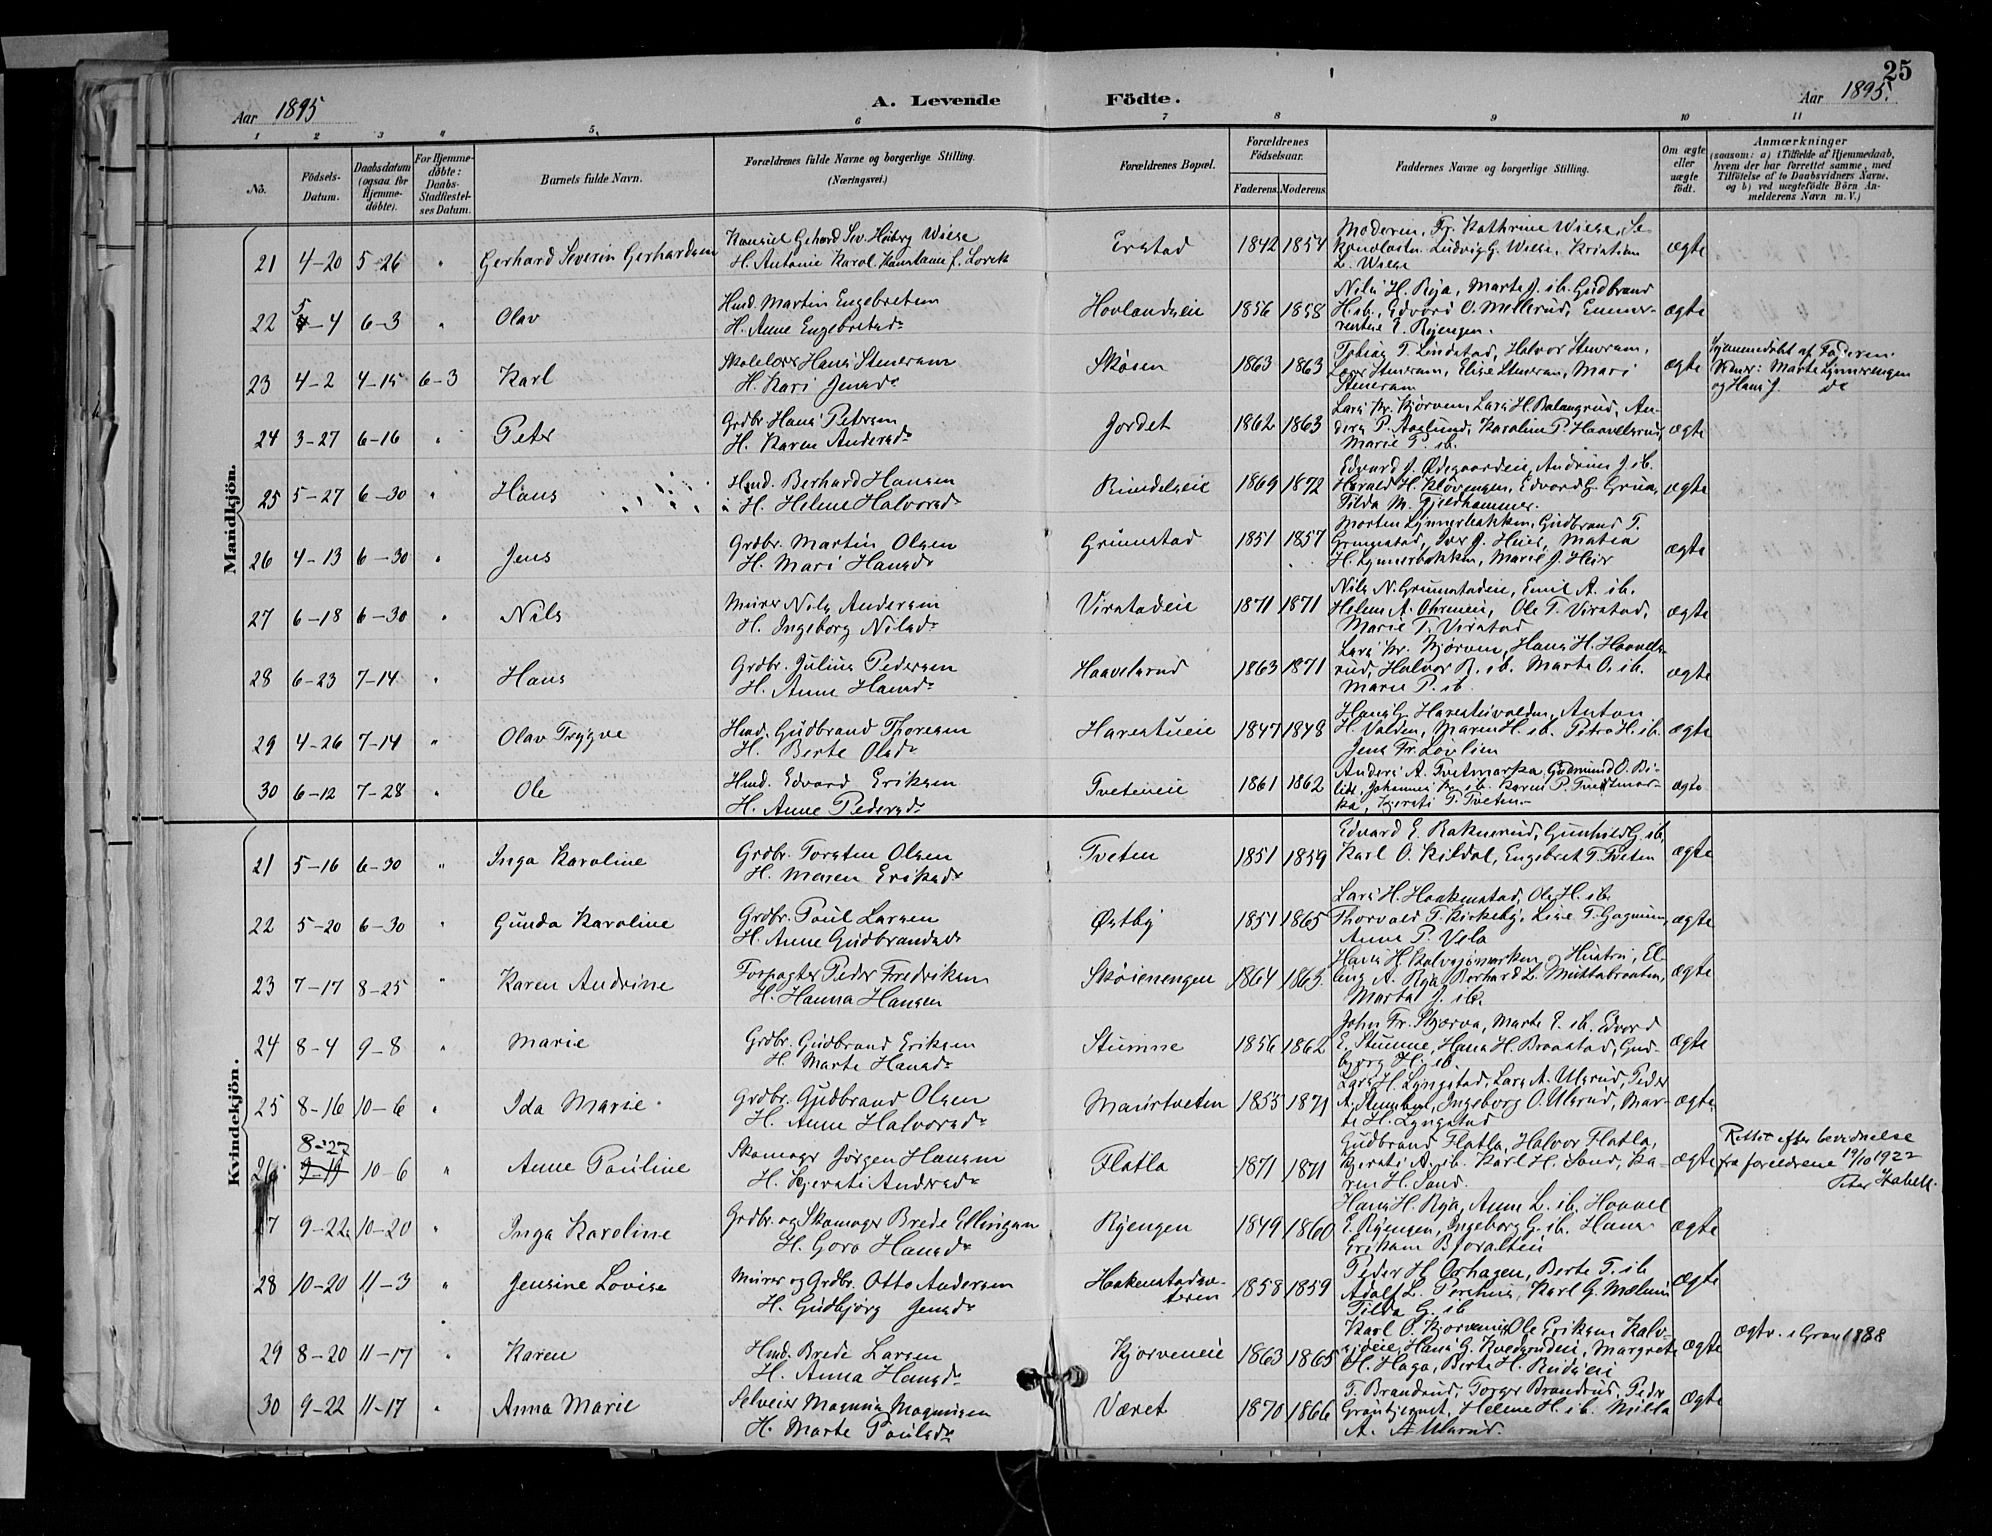 25
Aar 1895
A. Levende Födte.
Aar 1895.
1 2 3 4 5. 6 7 8 9 10 11
No.
Födsels-
Datum.
Daabsdatum
(ogsaa for
Hjemme-
döbte).
For Hjemme-
döbte:
Daabs-
Stadfæstel-
ses Datum.
Barnets fulde Navn.
Forældrenes fulde Navne og borgerlige Stilling.
(Næringsvei.)
Forældrenes Bopæl.
Forældrenes
Födselsaar.
Faderens. Moderens.
Faddernes Navne og borgerlige Stilling.
Om ægte
eller
uægte
födt.
Anmærkninger
(saasom: a) i Tilfælde af Hjemmedaab,
hvem der har forrettet samme, med
Tilföielse af to Daabsvidners Navne,
og b) ved uægtefödte Börn An-
melderens Navn m. V.)
Mandkjön.
21 4-20 5-26 " Gerhard Severin Gerhardsen
Konsul Gehard Sev. Heiberg Wiese
H. Antonie Karol. Konstance f. Lorck
1842 1854
Moderen, Fr. Kathrine Wiese, Se-
L. Wiese
ægte
22 5-4 6-3 " Olav
Hmd. Martin Engebretsen
H. Anne Engebretsdr
Hovlandseie 1856 1858
Nils H. Rya, Marte J. ib. Gudbrand
H. ib., Edvard O. Mellerud, Emmer-
rentse E. Ryengen.
ægte
23 4-2 4-15 6-3 Karl
Skolelærer Hans Stenersen
H. Kari Jensdr
Skøien 1863 1863
Tobias T. Lindstad, Halvor Stenersen,
Lars Stenersen, Elise Stenersen, Mari
Stenersen
ægte
Hjemmedøbt af Faderen.
Vidner: Marte Lynnerengen
og Hans J. do
24 3-27 6-16 " Peter
Grdbr. Hans Petersen
H. Karen Andersdr
Jordet 1862 1863
Lars Kr. Kjørven, Lars H. Balangrud, An-
ders P. Aaslund, Karoline P. Haavelsrud,
Marie P. ib.
ægte
25 5-27 6-30 " Hans
Hmd. Berhard Hansen
H. Helene Halvorsdr
Rundelseie 1869 1872
Edvard J. Ødegaardeie, Andrine J. ib.
Harald H. Kløvengen, Edvard G. Grua,
Tilda M. Fjeldhammer.
ægte
26 4-13 6-30 " Jens
Grdbr. Martin Olsen
H. Mari Hansdr
Grumstad 1851 1857
Morten Lynnerbakken, Gudbrand T.
Grumstad, Iver J. Heier, Matea
H. Lynnerbakken, Marie J. Heir
ægte
27 6-18 6-30 " Nils
Murer Nils Andersen
H. Ingeborg Nilsdr
Virstadeie 1871 1871
Nils N. Grumstadeie, Emil A. ib.
Helene A. Ohreneie, Ole T. Virstad,
Marie T. Virstad
ægte
28 6-23 7-14 " Hans
Grdbr. Julius Pedersen
H. Anne Hansdr
Haavelsrud 1863 1871
Lars Kr. Kjørven, Hans H. Haavels-
rud, Halvor R. ib. Marte O. ib.
Marie P. ib.
ægte
29 4-26 7-14 " Olav Trygve
Hmd. Gudbrand Thoresen
H. Berte Olsdr
Harestueie 1847 1848
Hans G. Harestuvolden, Anton
H. Volden, Maren H. ib. Petra H. ib.
Jens Fr. Løvlien
ægte
30 6-12 7-28 " Ole
Hmd. Edvard Eriksen
H. Anne Pedersdr
Tveteneie 1861 1862
Anders A. Tvetmarka, Gudmund O. Bi-
lidt, Johannes Kr. ib. Karen P. Tvetmar-
ka, Kjersti T. Tveten.
ægte
Kvindekjön.
21 5-16 6-30 " Inga Karoline
Grdbr. Torsten Olsen
H. Maren Eriksdr
Tveten 1851 1859
Edvard E. Raknerud, Gunhild G. ib.
Karl O. Kildal, Engebret T. Tveten
ægte
22 5-20 6-30 " Gunda Karoline
Grdbr. Poul Larsen
H. Anne Gudbrandsdr
Østby 1851 1865
Lars H. Haakenstad, Ole H. ib.
Thorvald T. Kirkeby, Lise T. Gagnum,
Anne P. Velo
ægte
23 7-17 8-25 " Karen Andrine
Forpagter Peder Fredriksen
H. Hanna Hansen
Skøienengen 1864 1865
Hans H. Kalvsjømarken og Hustru, El-
ling A. Rya, Berhard L. Muttabraaten,
Marta J. ib.
ægte
24 8-4 9-8 " Marie
Grdbr. Gudbrand Eriksen
H. Marte Hansdr
Stumne 1856 1862
John Fr. Skjerva, Marte E. ib. Edvard
E. Stumne, Hans H. Braastad, Gud-
bjørg H. ib.
ægte
25 8-16 10-6 " Ida Marie
Grdbr. Gudbrand Olsen
H. Anne Halvorsdr
Maurtveten 1855 1871
Lars H. Lyngstad, Lars A. Ulsrud, Peder
A. Stenshen, Ingeborg O. Ulsrud, Mar-
te H. Lyngstad
ægte
26 8-27 9-19 10-6 " Anne Pauline
Skomager Jørgen Hansen
H. Kjersti Andersdr
Flatla 1871 1871
Gudbrand Flatla, Halvor Flatla,
Kjersti A. ib. Karl H. Sand, Ka-
ren H. Sand.
ægte
Rettet efter bevidnelse
fra foreldrene 19/10 1922
27 9-22 10-20 " Inga Karoline
Grdbr. og Skomager Brede Ellingsen
H. Goro Hansdr
Ryengen 1849 1860
Hans H. Rya, Anne L. ib. Haavel
E. Ryengen, Ingeborg G. ib. Hans
Eriksen Bjoralteie
ægte
28 10-20 11-3 " Jensine Lovise
Murer og Grdbr. Otto Andersen
H. Gudbjørg Jensdr
Haakenstadsæ-
teren 1858 1859
Peder H. Orhagen, Berte T. ib.
Adolf L. Karl G. Mælum
Tilda G. ib
ægte
29 8-20 11-17 " Karen
Hmd. Brede Larsen
H. Anna Hansdr
Kjorveneie 1863 1865
Karl O. Kjorveneie, Ole Eriksen Kalv-
sjøeie, Hans G. Margrete
H. Haga, Berte H.
ægte
ægtv. i Gran 1888
30 9-22 11-17 " Anna Marie
Selveier Magnus Magnusen
H. Marte Paulsdr
Været 1870 1866
T. Brandrud, Torger Brandrud, Peder
Grantjernet, Helene H. ib. Milla
A. Ulsrud.
ægte